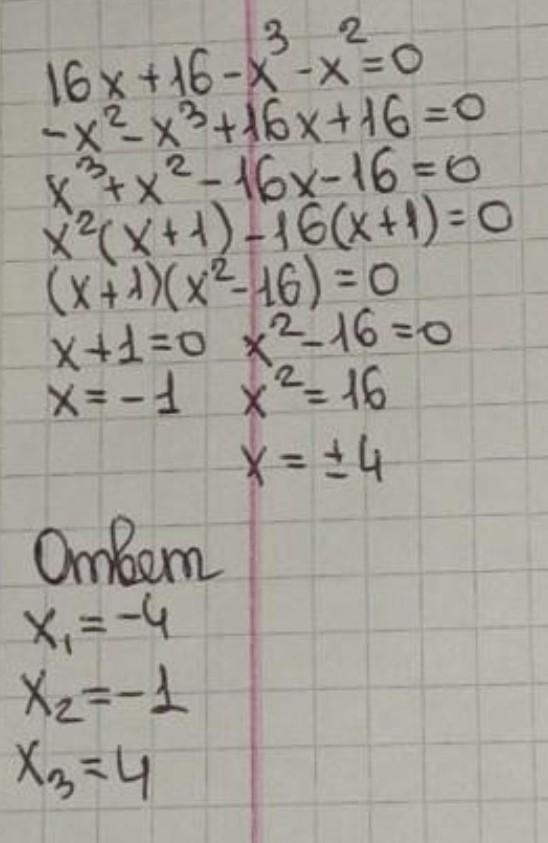 16x+16-x³-x²=0
-x²-x³+16x+16=0
x³+x²-16x-16=0
x²(x+1)-16(x+1)=0
(x+1)(x²-16)=0
x+1=0 x²-16=0
x=-1 x²=16
x=±4
Ответ
x₁=-4
x₂=-1
x₃=4